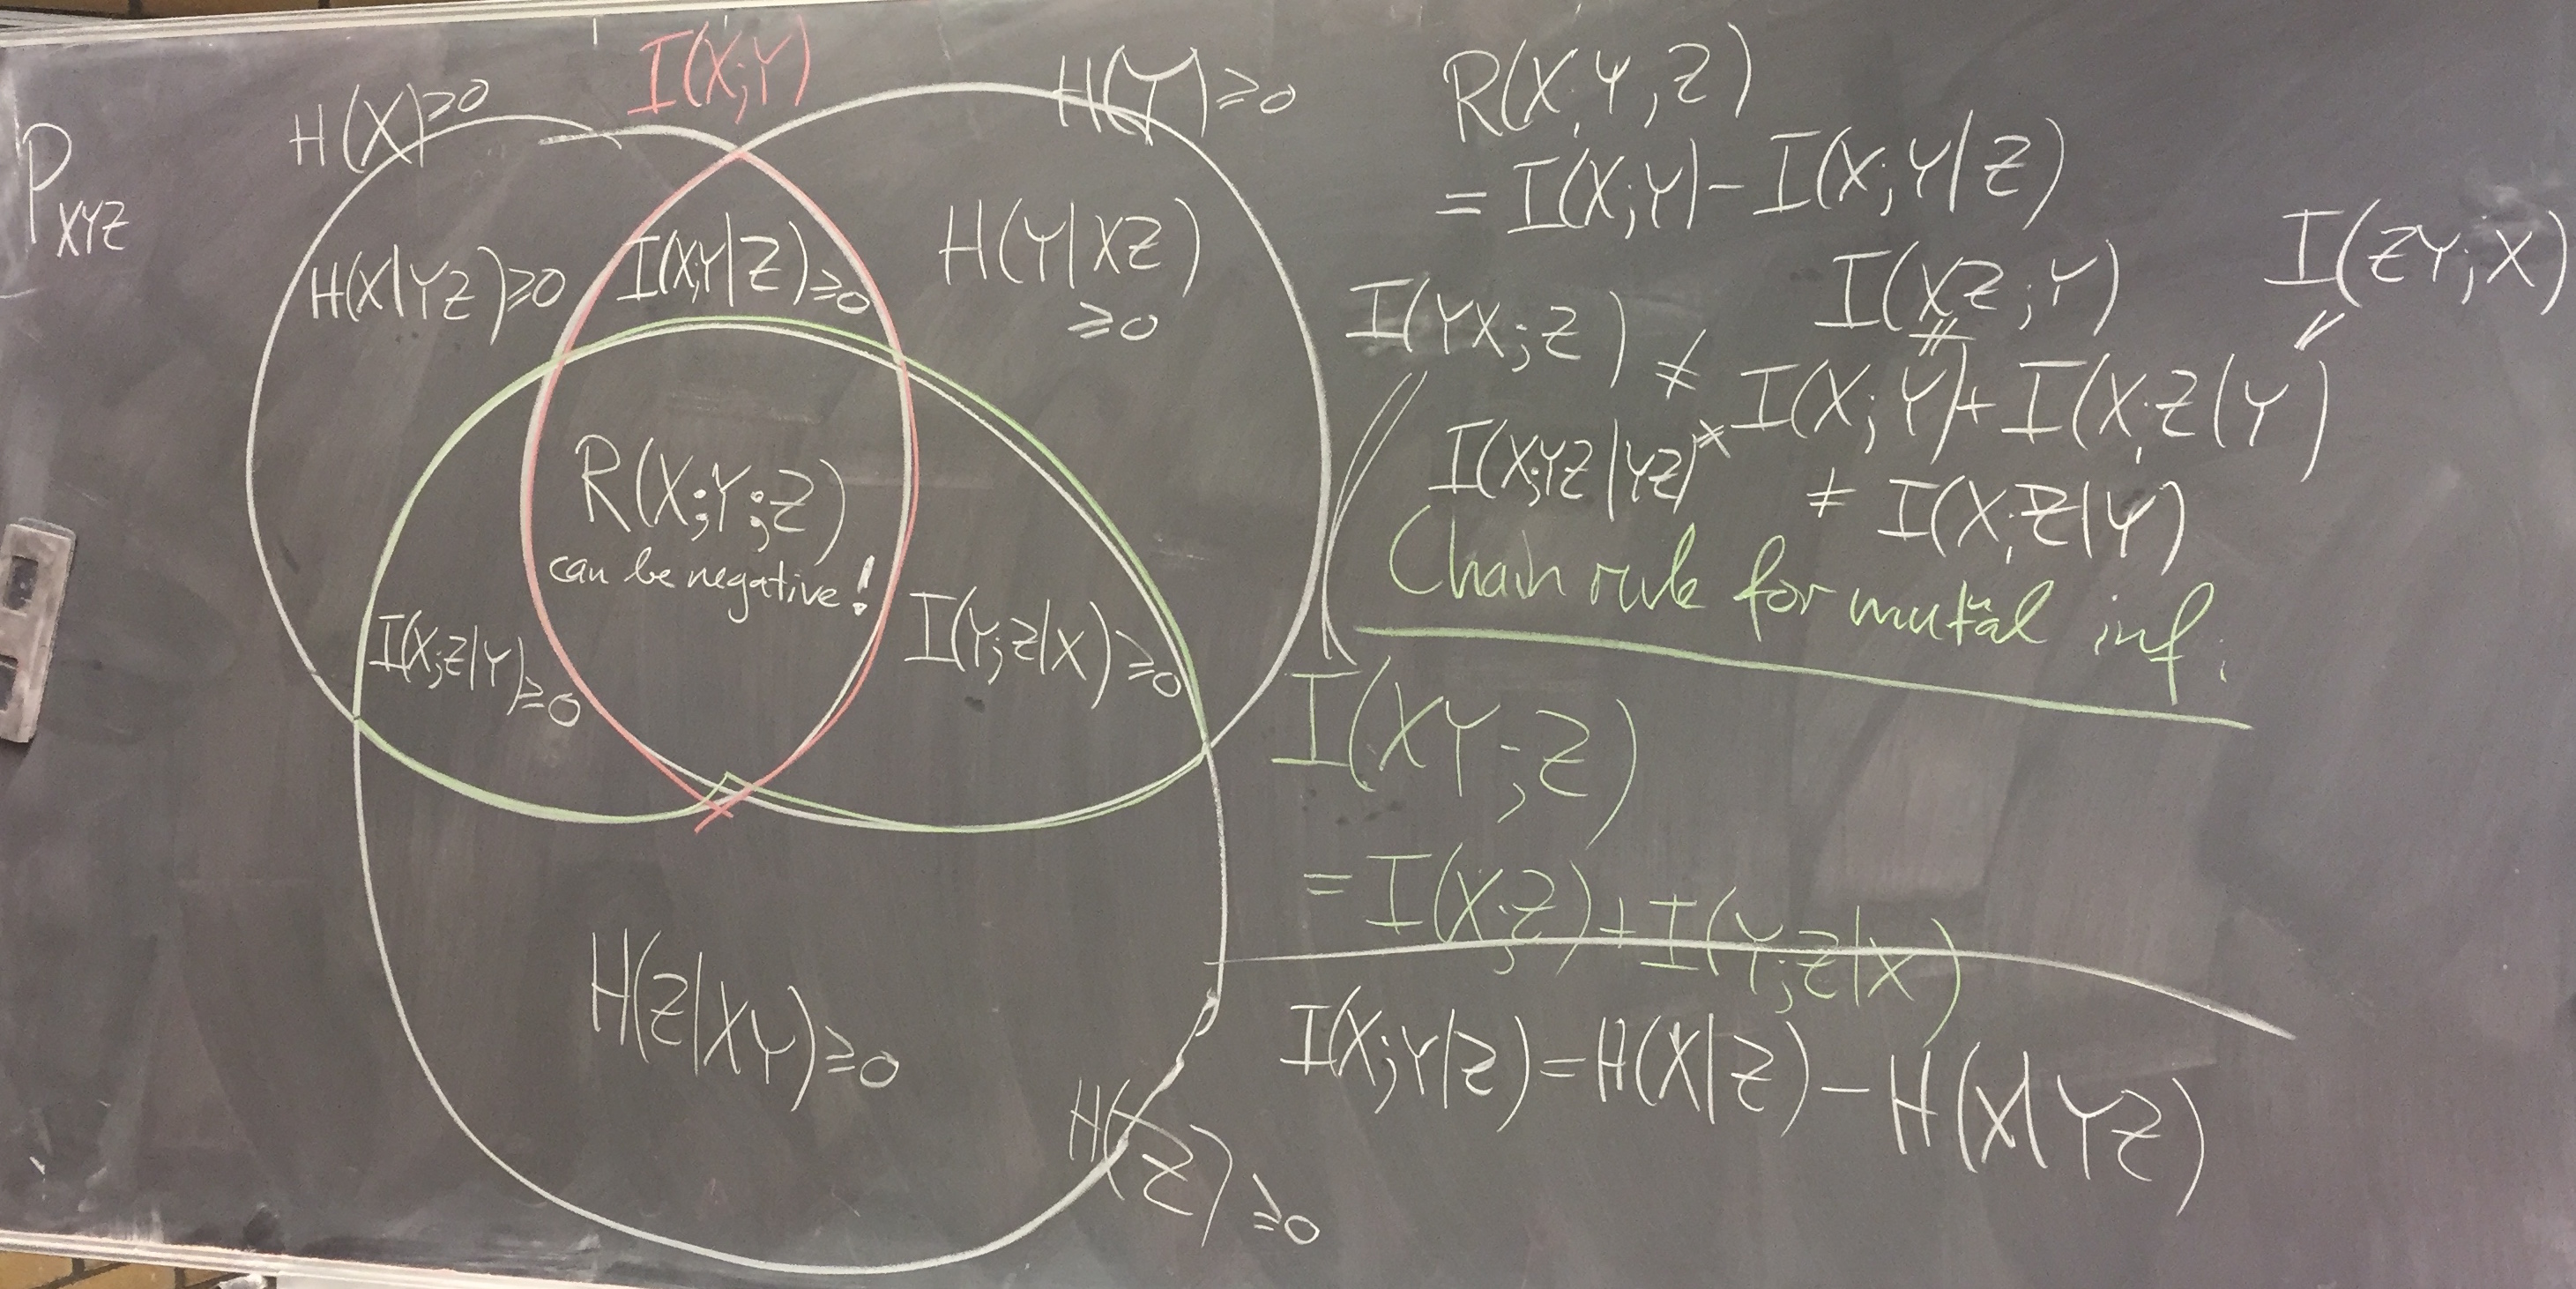 P_XYZ
H(X)≥0
I(X;Y)
H(Y)≥0
H(X|YZ)≥0
I(X;Y|Z)≥0
H(Y|XZ)
≥0
R(X;Y;Z)
can be negative!
I(X;Z|Y)≥0
I(Y;Z|X)≥0
H(Z|XY)≥0
H(Z)≥0
R(X,Y,Z)
= I(X;Y) - I(X;Y|Z)
I(XZ;Y)
I(ZY;X)
= =
I(YX;Z) ≠ I(X;Y) + I(X;Z|Y)
I(X;YZ|YZ) ≠ I(X;Z|Y)
Chain rule for mutual inf.
I(XY;Z)
= I(X;Z) + I(Y;Z|X)
I(X;Y|Z) = H(X|Z) - H(X|YZ)